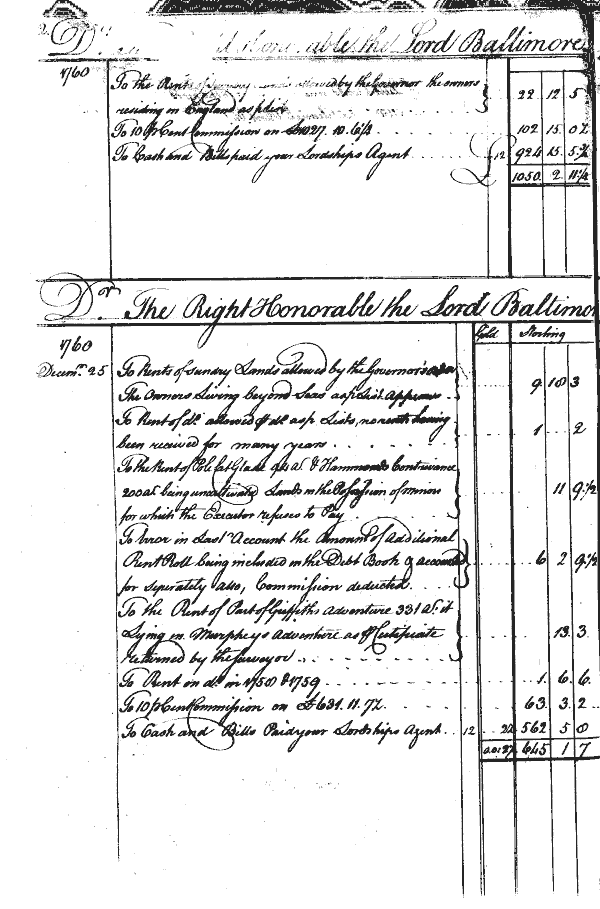 Dr. the Lord Baltimore
1760
To the Rents allowed by the Governor the owners
residing in England as pr list 22 12 5
To 10 pr Cent Commission on £1027. 10. 6¼ 102 15 0½
To Cash and Bills paid your Lordships Agent 12 924 15 5¾
£ 1050 2 11¼
Dr. The Right Honorable the Lord Baltimo
Gold Sterling
1760
Decemr. 25 To Rents of Sundry Lands allowed by the Governor's
The Owners Living beyond Seas as pr List appears 9 18 3
To Rent of do. allowed pr do. as p Lists, no rents having
been received for many years 1 2
To the Rent of Pole Cat Glade as. & Hammonds Contrivance
200 as. being uncultivated Lands in the Possession of minors 11 9½
for which the Executor refuses to Pay
To Error in Last Account the Amount of Additional
Rent Roll being included in the Debt Book & accounted 6 2 9½
for seperately also, Commission deducted
To the Rent of Part of Griffiths Adventure 331 as. it
Lying in Murpheys Adventure as pr Certificate 13 3
returned by the Surveyor
To Rent on do. in 1758 & 1759 1 6 6
To 10 pr Cent Commission on £631. 11. 7½ 63 3 2
To Cash and Bills Paid your Lordships Agent 12 22 562 5 8
645 1 7